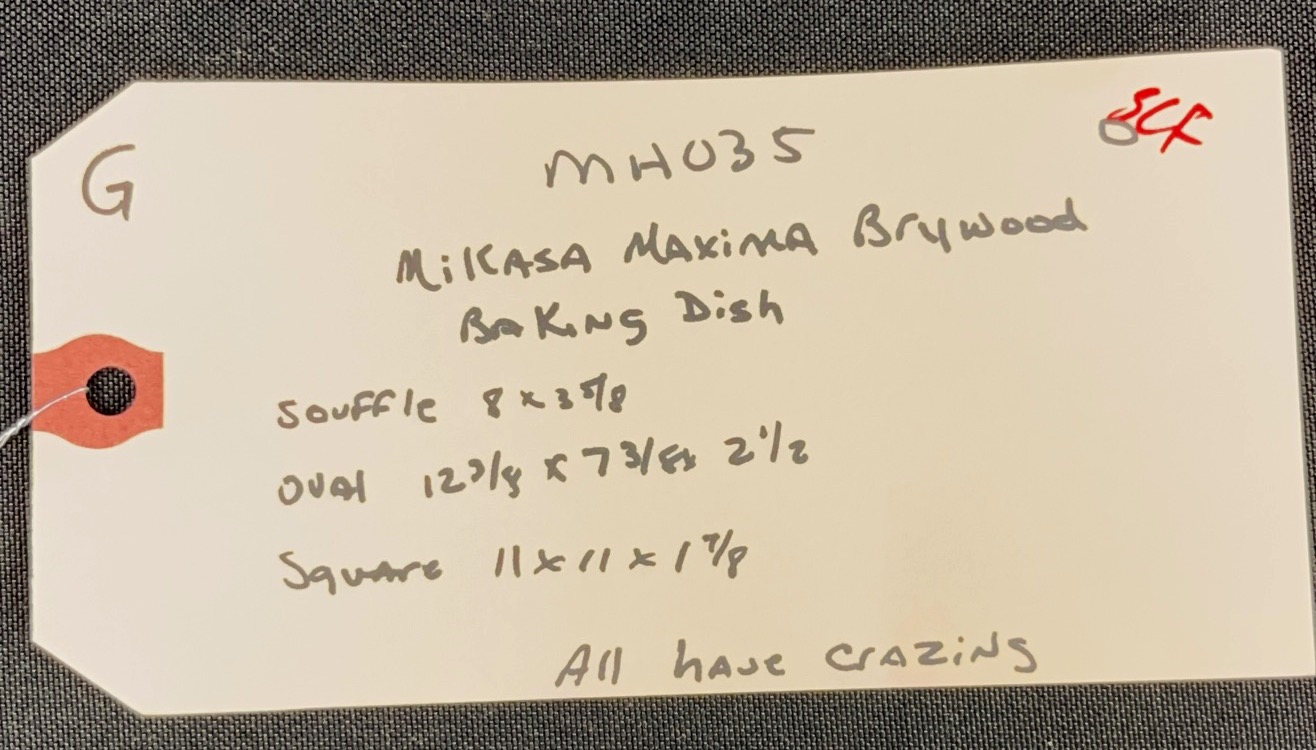 G
MH035
MiKASA MAXiMA Brywood
BAKiNg Dish
Souffle 8 x 3 5/8
OVAl 12 3/8 x 7 3/8 x 2 1/2
Square 11 x 11 x 1 7/8
All hAve CrAZiNg